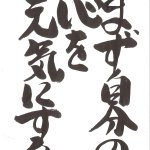 まず自分の
心を
元気にする